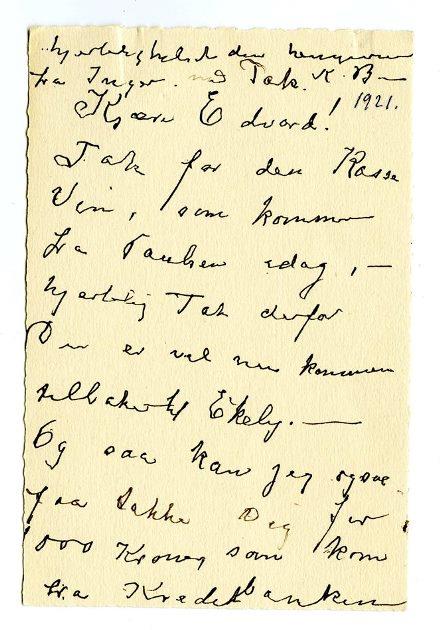 hjertelig hilset den
fra Inger. med Tak. K. B—
1921.
Kjære Edvard!
Tak for den Kasse
Vin, som kommer
fra Paulsen idag, —
hjertelig Tak derfor
Du er vel nu kommen
tilbake til Ekely. —
Og saa kan jeg ogsaa
faa takke Dig for
1000 Kroner som kom
fra Kreditbanken